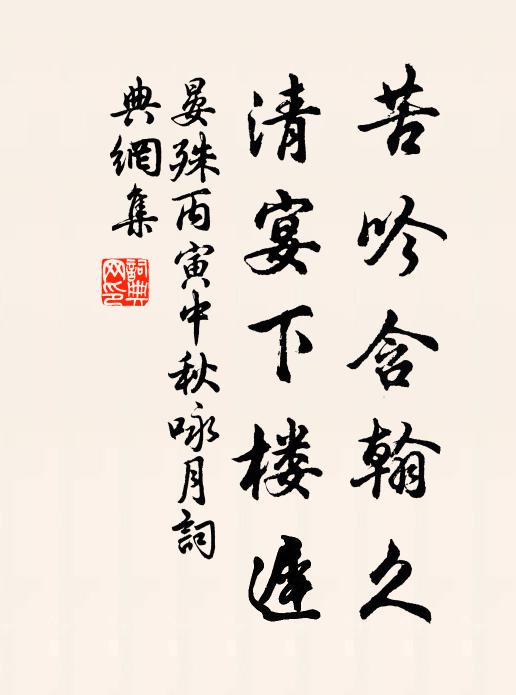 苦吟含翰久
清宴下楼遲
晏殊丙寅中秋咏月詞
典網集
詞典
网印